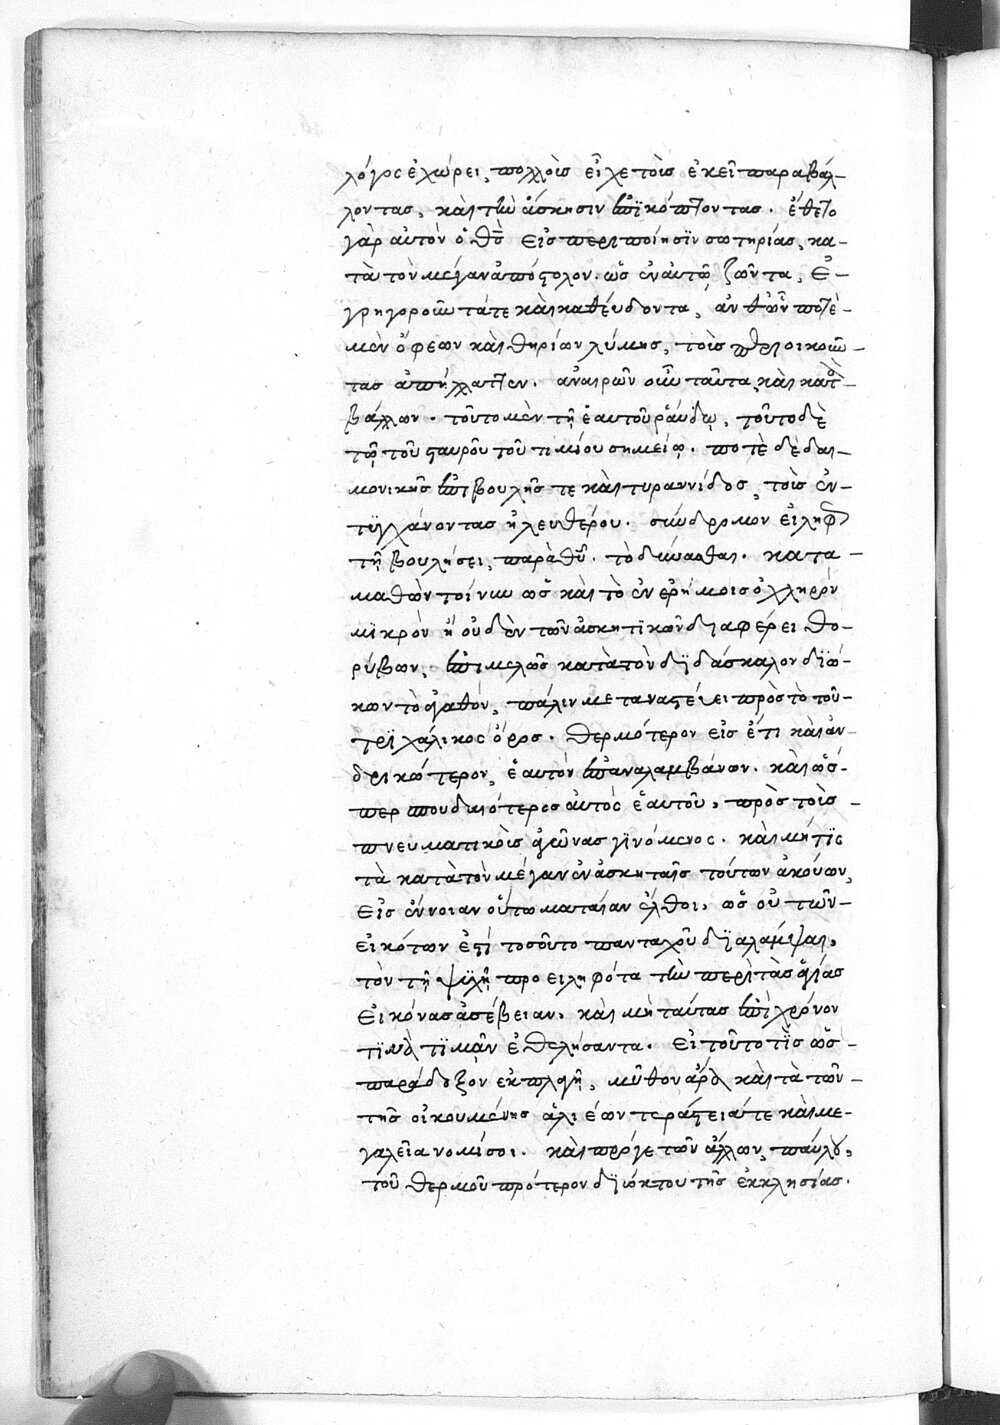 λόγος ἐχώρει, πολλοῖς εἶχε τοῖς ἐκεῖ παραβάλ-
λοντας, καὶ τὴν ἄσκησιν ἐπικόπτοντας. ἔθετο
γὰρ αὐτὸν ὁ θς εἰς περιποίησϊν σωτηρίας, κα-
τὰ τὸν μέγαν ἀπόστολον. ὡς ἐν αὐτῶ ζῶντα, ἐ-
γρηγοροῦντά τε καὶ καθεύδοντα, ἀνθ' ὧν ποτὲ
μὲν ὄφεων καὶ θηρίων λύμης, τοῖς παροικοῦν-
τας ἀπήλλαττεν. ἀναιρῶν οὖν ταῦτα, καὶ κατα-
βάλλων. τοῦτο μὲν τῆ ἑαυτοῦ ῥάβδω, τοῦτο δὲ
τῶ τοῦ σταυροῦ τοῦ τιμίου σημείω. ποτὲ δὲ δαι-
μονικῆς ἐπιβουλῆς τε καὶ τυραννίδος, τοῖς ἐν-
τϋγχάνοντας ἠλευθέρου. σύνδρομον εἰληφὼς
τῆ βουλήσει, παρὰ θυ. τὸ δύνασθαι. κατα-
μαθὼν τοίνυν ὡς καὶ τὸ ἐν ἐρήμοις ὀχληρὸν
μϊκρὸν ἢ οὐδὲν τῶν ἀσκητϊκῶν διαφέρει θο-
ρύβων, ἐπιμελῶς κατὰ τὸν δϊδάσκαλον δϊώ-
κων τὸ ἀγαθόν, πάλιν μεταναστεύει πρὸς τὸ τοῦ
τρϊχάλικος ὄρος. θερμότερον εἰς ἔτι καὶ ἀν-
δρικώτερον, ἑαυτὸν ἐπαναλαμβάνων. καὶ ὥσ-
περ σπουδαιότερος αὐτὸς ἑαυτοῦ, πρὸς τοῖς
πνευματικοῖς ἀγῶνας γϊνόμενος. καὶ μή τϊς
τὰ κατὰ τὸν μέγαν ἐν ἀσκηταῖς τούτων ἀκούων,
εἰς ἔννοιαν οὕτω ματαίαν ἔλθοι, ὡς οὐ τῶν
εἰκότων ἐστί τοσοῦτο πανταχοῦ δϊαλάμψαι,
τὸν τῆ ψϋχῆ προειληφότα τὴν περὶ τὰς ἁγίας
εἰκόνας ἀσέβειαν, καὶ μὴ ταύτας ἐπὶ χρόνον
τϊνὰ τϊμᾶν ἐθελήσαντα. εἰ τοῦτο τϊς ὡς
παράδοξον ἐκπλαγῆ, μῦθον ἄρα καὶ τὰ τῶν
τῆς οἰκουμένης ἁλιέων τεράστειά τε καὶ με-
γαλεῖα νομίσοι. καὶ πρό γε τῶν ἄλλων, παύλου,
τοῦ θερμοῦ πρότερον δϊώκτου τῆς ἐκκλησίας.